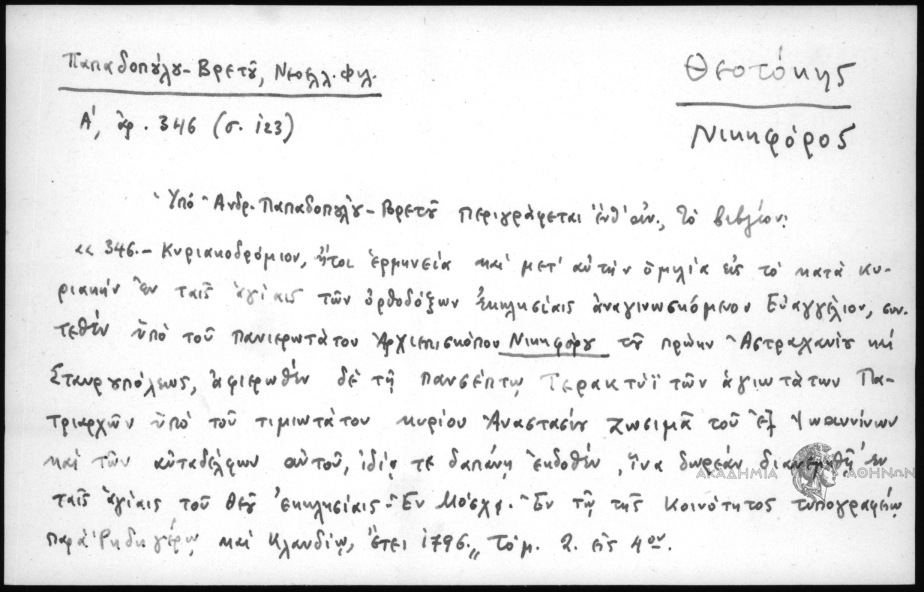 Παπαδοπούλου-Βρετοῦ, Νεοελλ. Φιλ.
Α', ἀρ. 346 (σ. 123)
Θεοτόκης
Νικηφόρος
Ὑπό Ἀνδρ. Παπαδοπούλου-Βρετοῦ περιγράφεται ἐνθ' ἀν., τὸ βιβλίον:
«346.- Κυριακοδρόμιον, ἤτοι ἑρμηνεία καὶ μετ' αὐτὴν ὁμιλία εἰς τὸ κατὰ κυ-
ριακὴν ἐν ταῖς ἁγίαις τῶν ὀρθοδόξων ἐκκλησίαις ἀναγινωσκόμενον Εὐαγγέλιον, συν-
τεθὲν ὑπὸ τοῦ πανιερωτάτου Ἀρχιεπισκόπου Νικηφόρου τοῦ πρώην Ἀστραχανίου καὶ
Σταυρουπόλεως, ἀφιερωθὲν δὲ τῇ πανσέπτῳ Τετρακτύϊ τῶν ἁγιωτάτων Πα-
τριαρχῶν ὑπὸ τοῦ τιμιωτάτου κυρίου Ἀναστασίου Ζωσιμᾶ τοῦ ἐξ Ἰωαννίνων
καὶ τῶν αὐταδέλφων αὐτοῦ, ἰδίᾳ τε δαπάνῃ ἐκδοθὲν, ἵνα δωρεὰν διανεμηθῇ ἐν
ταῖς ἁγίαις τοῦ Θεοῦ ἐκκλησίαις - Ἐν Μόσχᾳ. Ἐν τῷ τῆς Κοινότητος τυπογραφείῳ
παρὰ Ῥηδιγέρῳ καὶ Κλαυδίῳ, ἔτει 1796.,, Τόμ. 2. εἰς 4ον.
ΑΚΑΔΗΜΙΑ ΑΘΗΝΩΝ